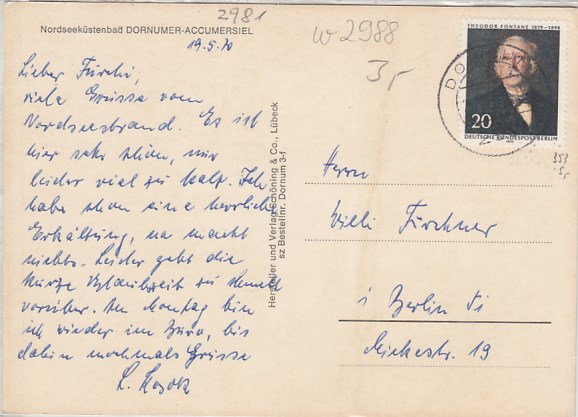 2981
w 2988
3,-
Nordseeküstenbad DORNUMER-ACCUMERSIEL
19.5.70
Lieber Fürchi,
viele Grüsse vom
Nordseestrand. Es ist
hier sehr schön, nur
leider viel zu kalt. Ich
habe schon eine herrliche
Erkältung, na macht
nichts. Leider geht die
kurze Urlaubszeit zu schnell
vorüber. Am Montag bin
ich wieder im Büro, bis
dahin nochmals Grüsse
Hersteller und Verlag Schöning & Co., Lübeck
sz Bestellnr. Dornum 3-f
THEODOR FONTANE 1819-1898
20
DEUTSCHE BUNDESPOST BERLIN
1970
353
5,-
Herrn
Willi Fürchner
1 Berlin 51
Mickestr. 19